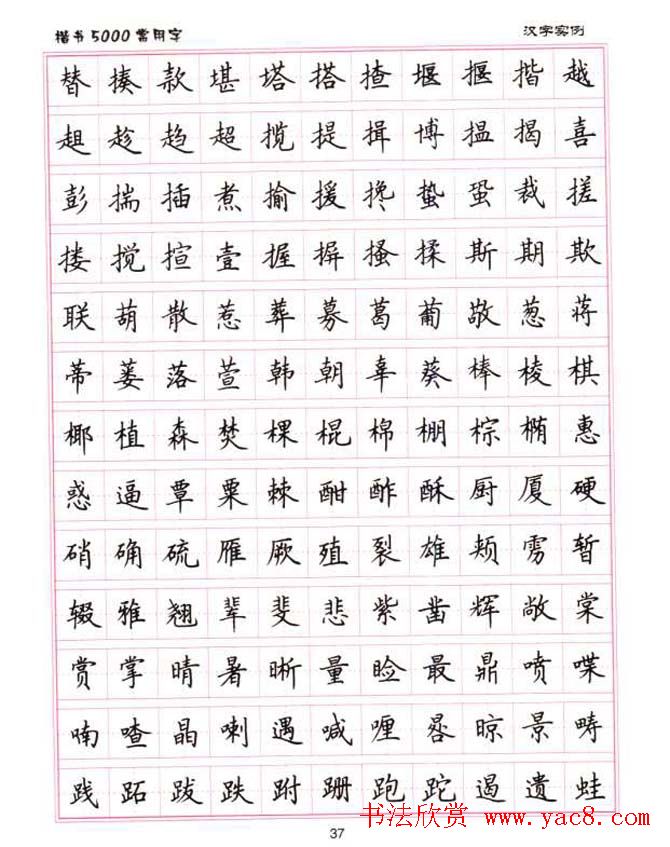 楷书5000常用字 汉字实例
替揍款堪塔搭揸堰揠揩越
趄趁趋超揽提揖博揾揭喜
彭揣插煮揄援搀蛰蛩裁搓
搂搅揎壹握摒搔揉斯期欺
联葫散惹葬募葛葡敬葱蒋
蒂蒌落萱韩朝辜葵棒棱棋
椰植森焚棵棍棉棚棕椭惠
惑逼覃粟棘酣酢酥厨厦硬
硝确硫雁厥殖裂雄颊雳暂
辍雅翘辈斐悲紫凿辉敞棠
赏掌晴暑晰量睑最鼎喷喋
喃喳晶喇遇喊喱晷晾景畴
践跖跋跌跗跚跑跎遏遗蛙
书法欣赏 www.yac8.com
37